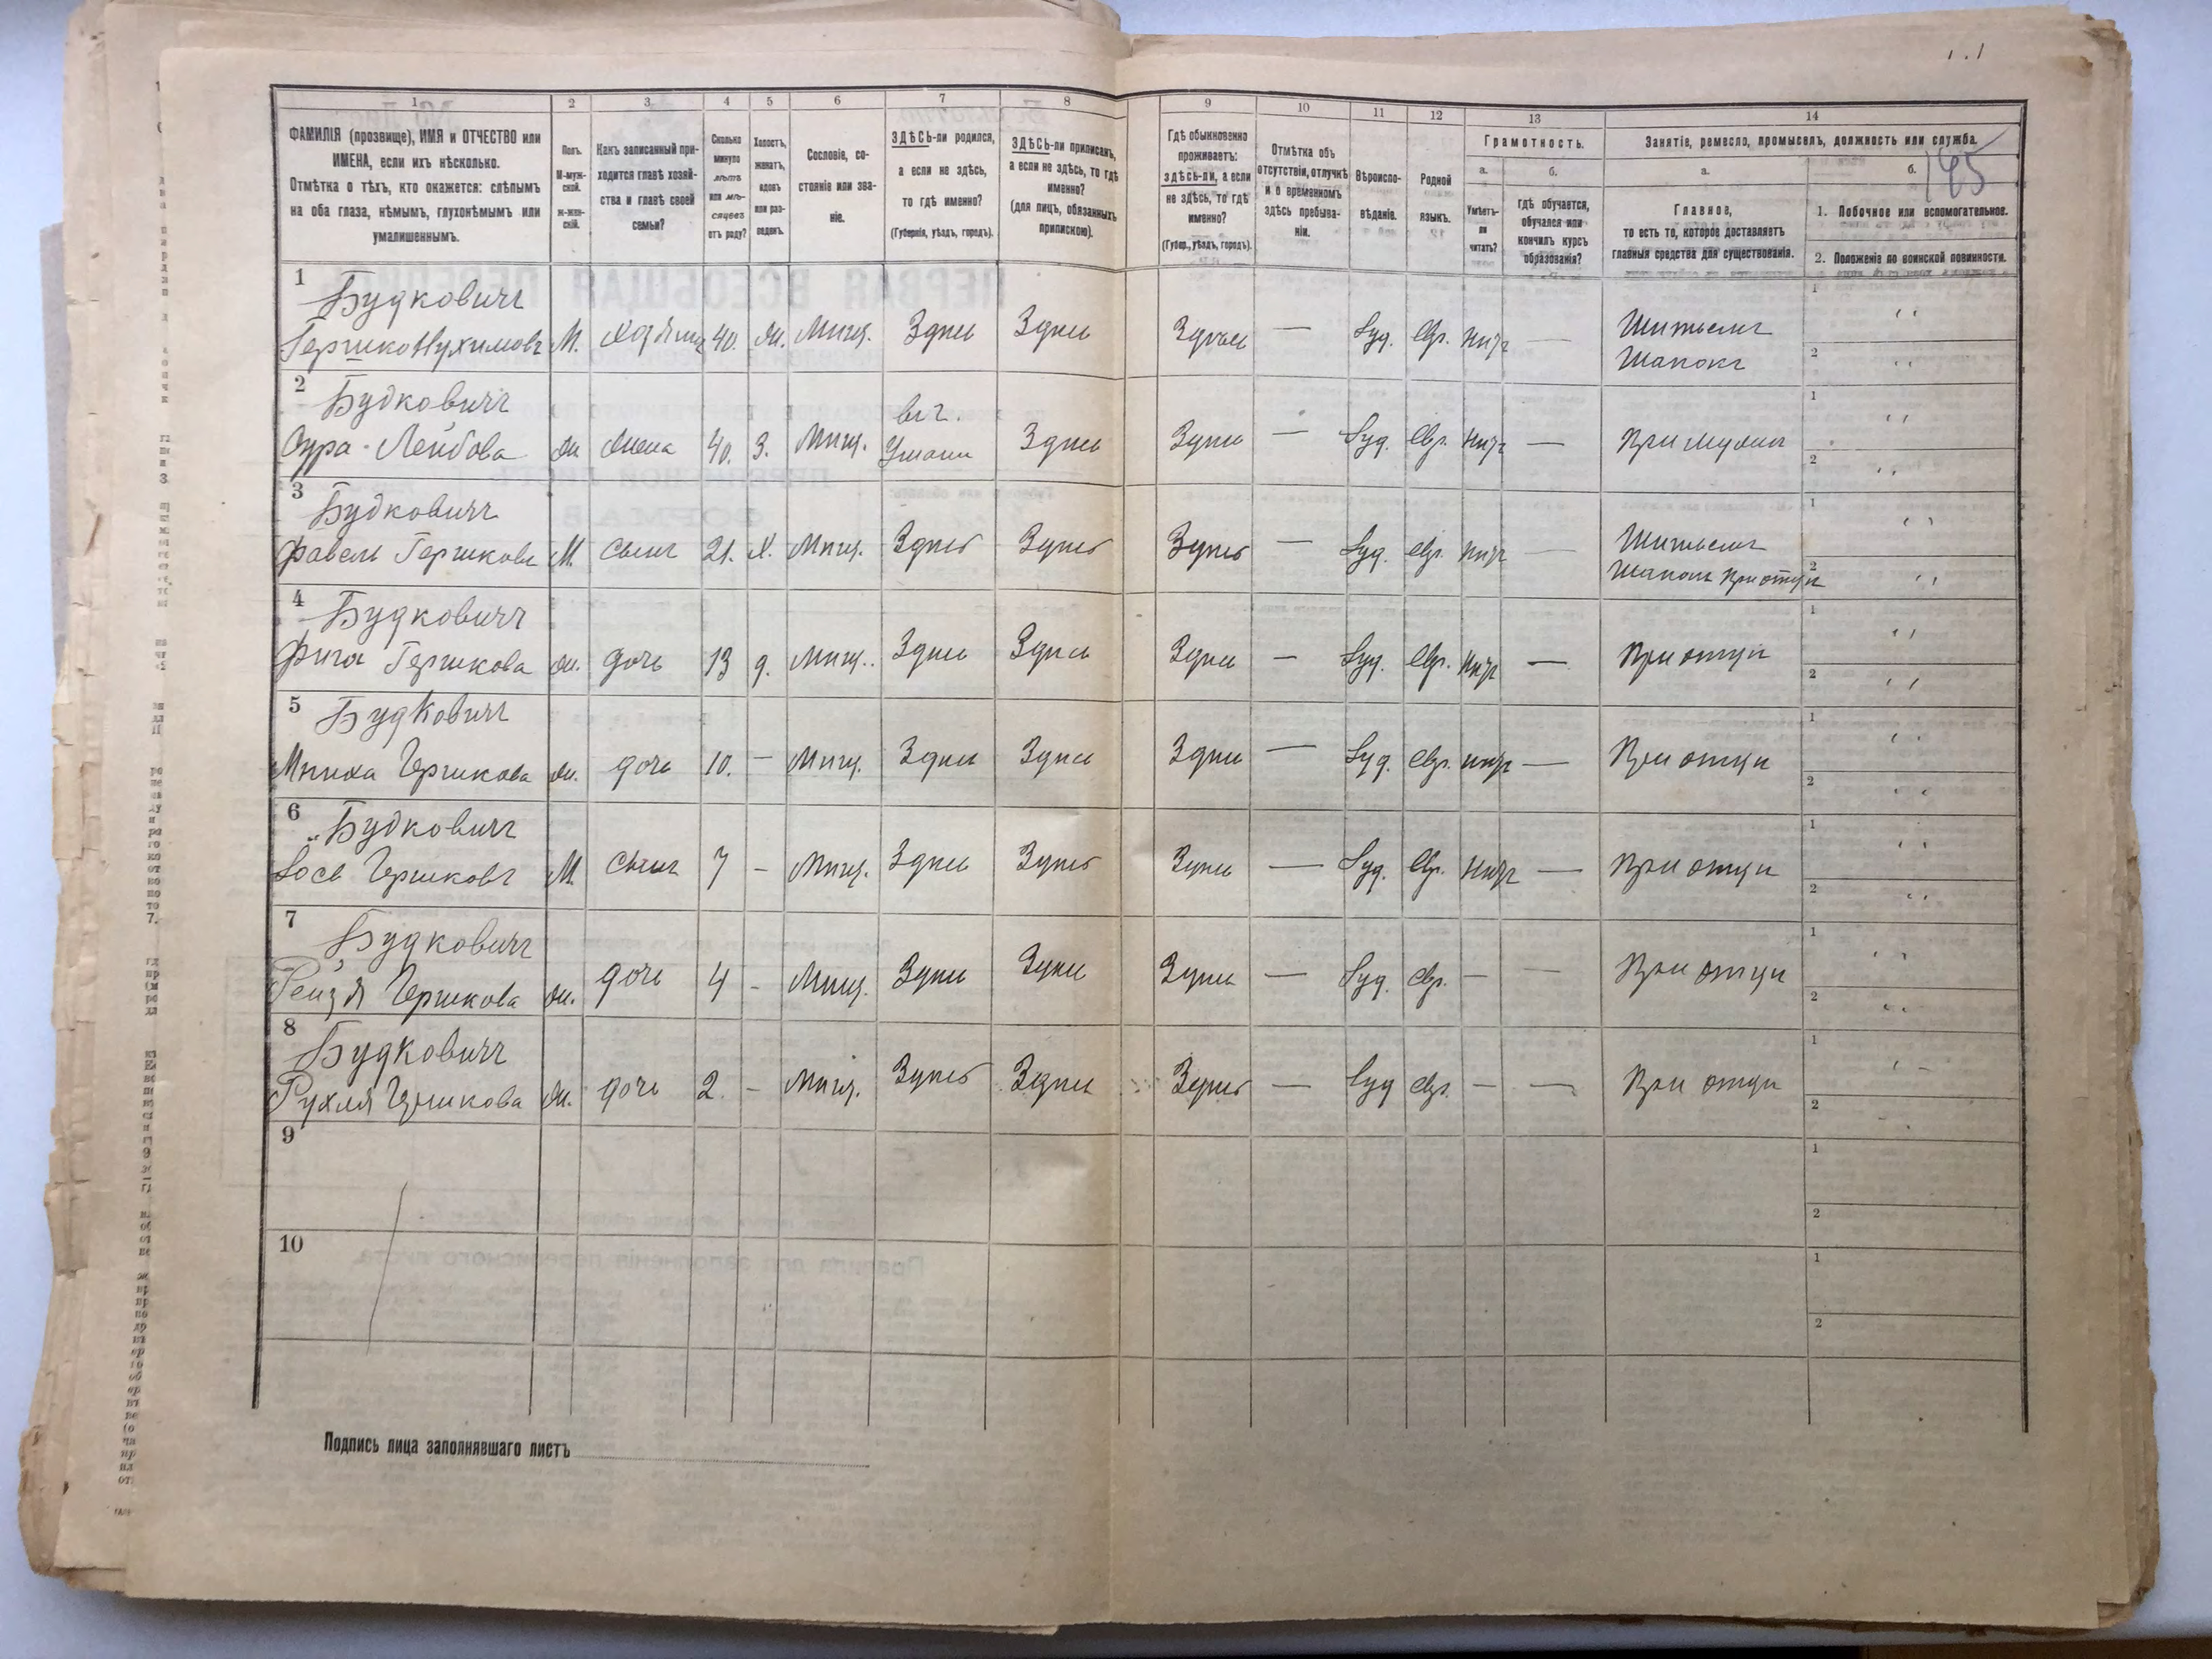 1 2 3 4 5 6 7 8 9 10 11 12 13 14
ФАМИЛІЯ (прозвище), ИМЯ и ОТЧЕСТВО или
ИМЕНА, если ихъ нѣсколько.
Отмѣтка о тѣхъ, кто окажется: слѣпымъ
на оба глаза, нѣмымъ, глухонѣмымъ или
умалишеннымъ.
Полъ.
М-муж-
ской.
ж-жен-
скій.
Какъ записанный при-
ходится главѣ хозяй-
ства и главѣ своей
семьи?
Сколько
минуло
лѣтъ
или мѣ-
сяцевъ
отъ роду?
Холостъ,
женатъ,
вдовъ
или раз-
веденъ.
Сословіе, со-
стояніе или зва-
ніе.
ЗДѢСЬ-ли родился,
а если не здѣсь,
то гдѣ именно?
(Губернія, уѣздъ, городъ).
ЗДѢСЬ-ли приписанъ,
а если не здѣсь, то гдѣ
именно?
(для лицъ, обязанныхъ
припискою).
Гдѣ обыкновенно
проживаетъ:
здѣсь-ли, а если
не здѣсь, то гдѣ
именно?
(Губер., уѣздъ, городъ).
Отмѣтка объ
отсутствіи, отлучкѣ
и о временномъ
здѣсь пребыва-
ніи.
Вѣроиспо-
вѣданіе.
Родной
языкъ.
Грамотность.
а.
Умѣетъ-
ли
читать?
б.
Гдѣ обучается,
обучался или
кончилъ курсъ
образованія?
Занятіе, ремесло, промыселъ, должность или служба.
а.
Главное,
то есть то, которое доставляетъ
главныя средства для существованія.
б.
1. Побочное или вспомогательное.
2. Положеніе по воинской повинности.
195
1
Будковичъ
Гершко Нухимовъ М. Хозяинъ 40. Ж. Мѣщ. Здѣсь Здѣсь Здѣсь — Іуд. Евр. Нѣтъ — Шитьемъ
Шапокъ
1 "
2 "
2
Будковичъ
Сура Лейбова Ж Жена 40. З. Мѣщ. въ г.
Умани Здѣсь Здѣсь — Іуд. Евр. Нѣтъ — При мужѣ
1 "
2 "
3
Будковичъ
Фавель Гершковъ М. Сынъ 21. Х. Мѣщ. Здѣсь Здѣсь Здѣсь — Іуд. Евр. Нѣтъ — Шитьемъ
Шапокъ при отцѣ
1 "
2 "
4
Будковичъ
Фига Гершкова Ж. дочь 13 д. Мѣщ. Здѣсь Здѣсь Здѣсь — Іуд. Евр. Нѣтъ — При отцѣ
1 "
2 "
5
Будковичъ
Гершкова Ж. дочь 10. — Мѣщ. Здѣсь Здѣсь Здѣсь — Іуд. Евр. Нѣтъ — При отцѣ
1 "
2 "
6
Будковичъ
Іось Гершковъ М. Сынъ 7 — Мѣщ. Здѣсь Здѣсь Здѣсь — Іуд. Евр. Нѣтъ — При отцѣ
1 "
2 "
7
Будковичъ
Рейзя Гершкова Ж. дочь 4 — Мѣщ. Здѣсь Здѣсь Здѣсь — Іуд. Евр. — — При отцѣ
1 "
2 "
8
Будковичъ
Рухля Гершкова Ж. дочь 2. — Мѣщ. Здѣсь Здѣсь Здѣсь — Іуд Евр. — — При отцѣ
1 "
2 "
9
1
2
10
1
2
Подпись лица заполнявшаго листъ